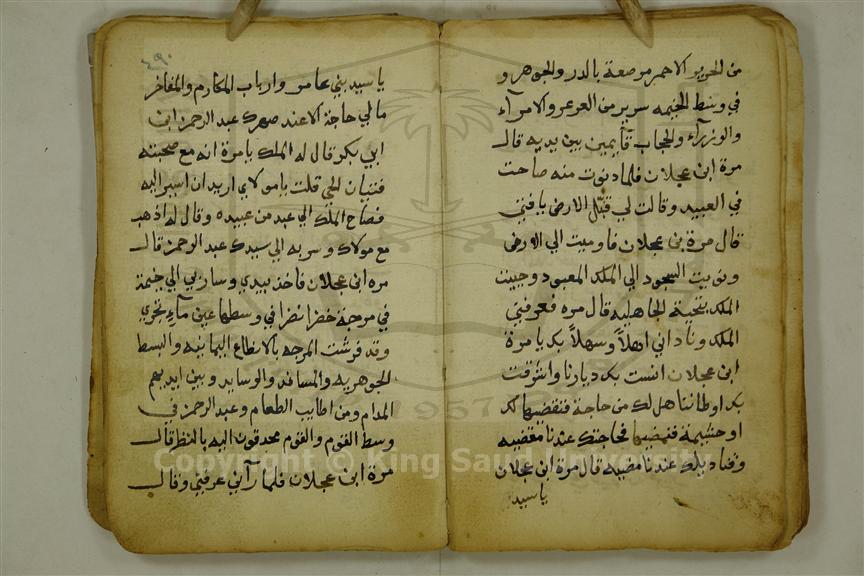 من الحرير الاحمر مرصعة بالدر والجوهر و
في وسط الخيمه سرير من العرعر والامرآء
والوزرآء والحجاب قآيمين بين يديه قال
مرة ابن عجلان فلما دنوت منه صاحت
في العبيد وقالت لي قبّل الارض يا فتى
قال مرة بن عجلان فاوميت الي الارض
ونويت السجود الي الملك المعبود وحييت
الملك بتحية الجاهليه قال مره فعرفني
الملك وناداني اهلاً وسهلاً بك يا مرة
ابن عجلان انست بك ديارنا واشرقت
بك اوطاننا هل لك من حاجة فنقضيها لك
او حشيمة فنمضيها فحاجتك عندنا مقضيه
عندنا مضيه قال مرة ابن عجلان
يا سيد
٤٩٠
يا سيد بني عامر وارباب المكارم والمفاخر
مالي حاجة الا عند صهرك عبد الرحمن ابن
ابي بكر قال له الملك يا مرة انه مع صحبته
فتيان الحي قلت يا مولاي اريد ان اسير اليه
فصاح الملك الي عبد من عبيده وقال له اذهب
مع مولاك وسر به الي سيدك عبد الرحمن قال
مره ابن عجلان فاخذ بيدي وسار بي الي خيمة
في مرجة خضرا نضرا في وسطها عين مآء تجري
وقد فرشت المرجه بالانطاع اليمانيه والبسط
الجوهريه والمساند والوسايد وبين ايديهم
المدام ومن اطايب الطعام وعبد الرحمن في
وسط القوم والقوم محدقون اليه بالنظر قال
مرة ابن عجلان فلما رآني عرفني وقال
1957
Copyright © King Saud University